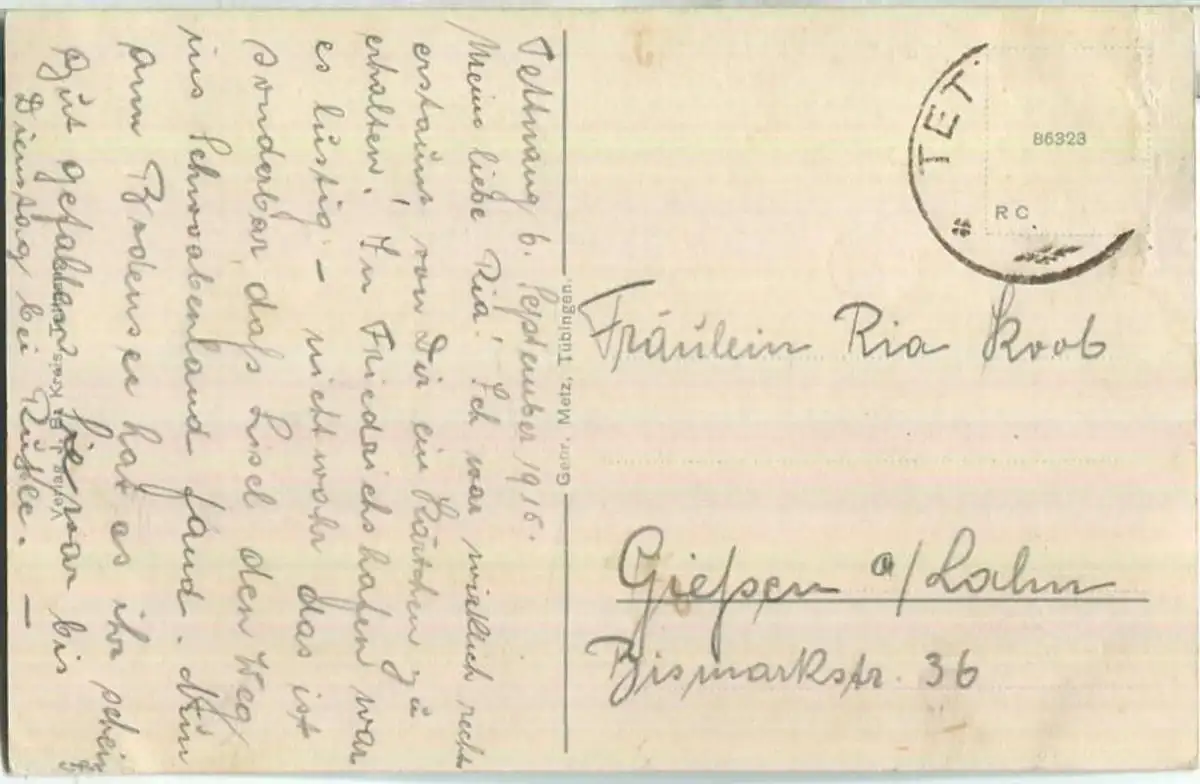 Tettnang 6. September 1916.
Meine liebe Ria! Ich war wirklich recht
erstaunt von Dir ein Kärtchen zu
erhalten! In Friedrichshafen war
es lustig - nicht wahr das ist
sonderbar, daß Lisel den Weg
ins Schwabenland fand. Nun
am Bodensee hat es ihr schein
gut gefallen sie war bis
Dienstag bei Rustle. -
Verlag
Genr. Metz, Tübingen.
TET.
86323
RC
Fräulein Ria Koob
Gießen a/Lahn
Bismarkstr. 36